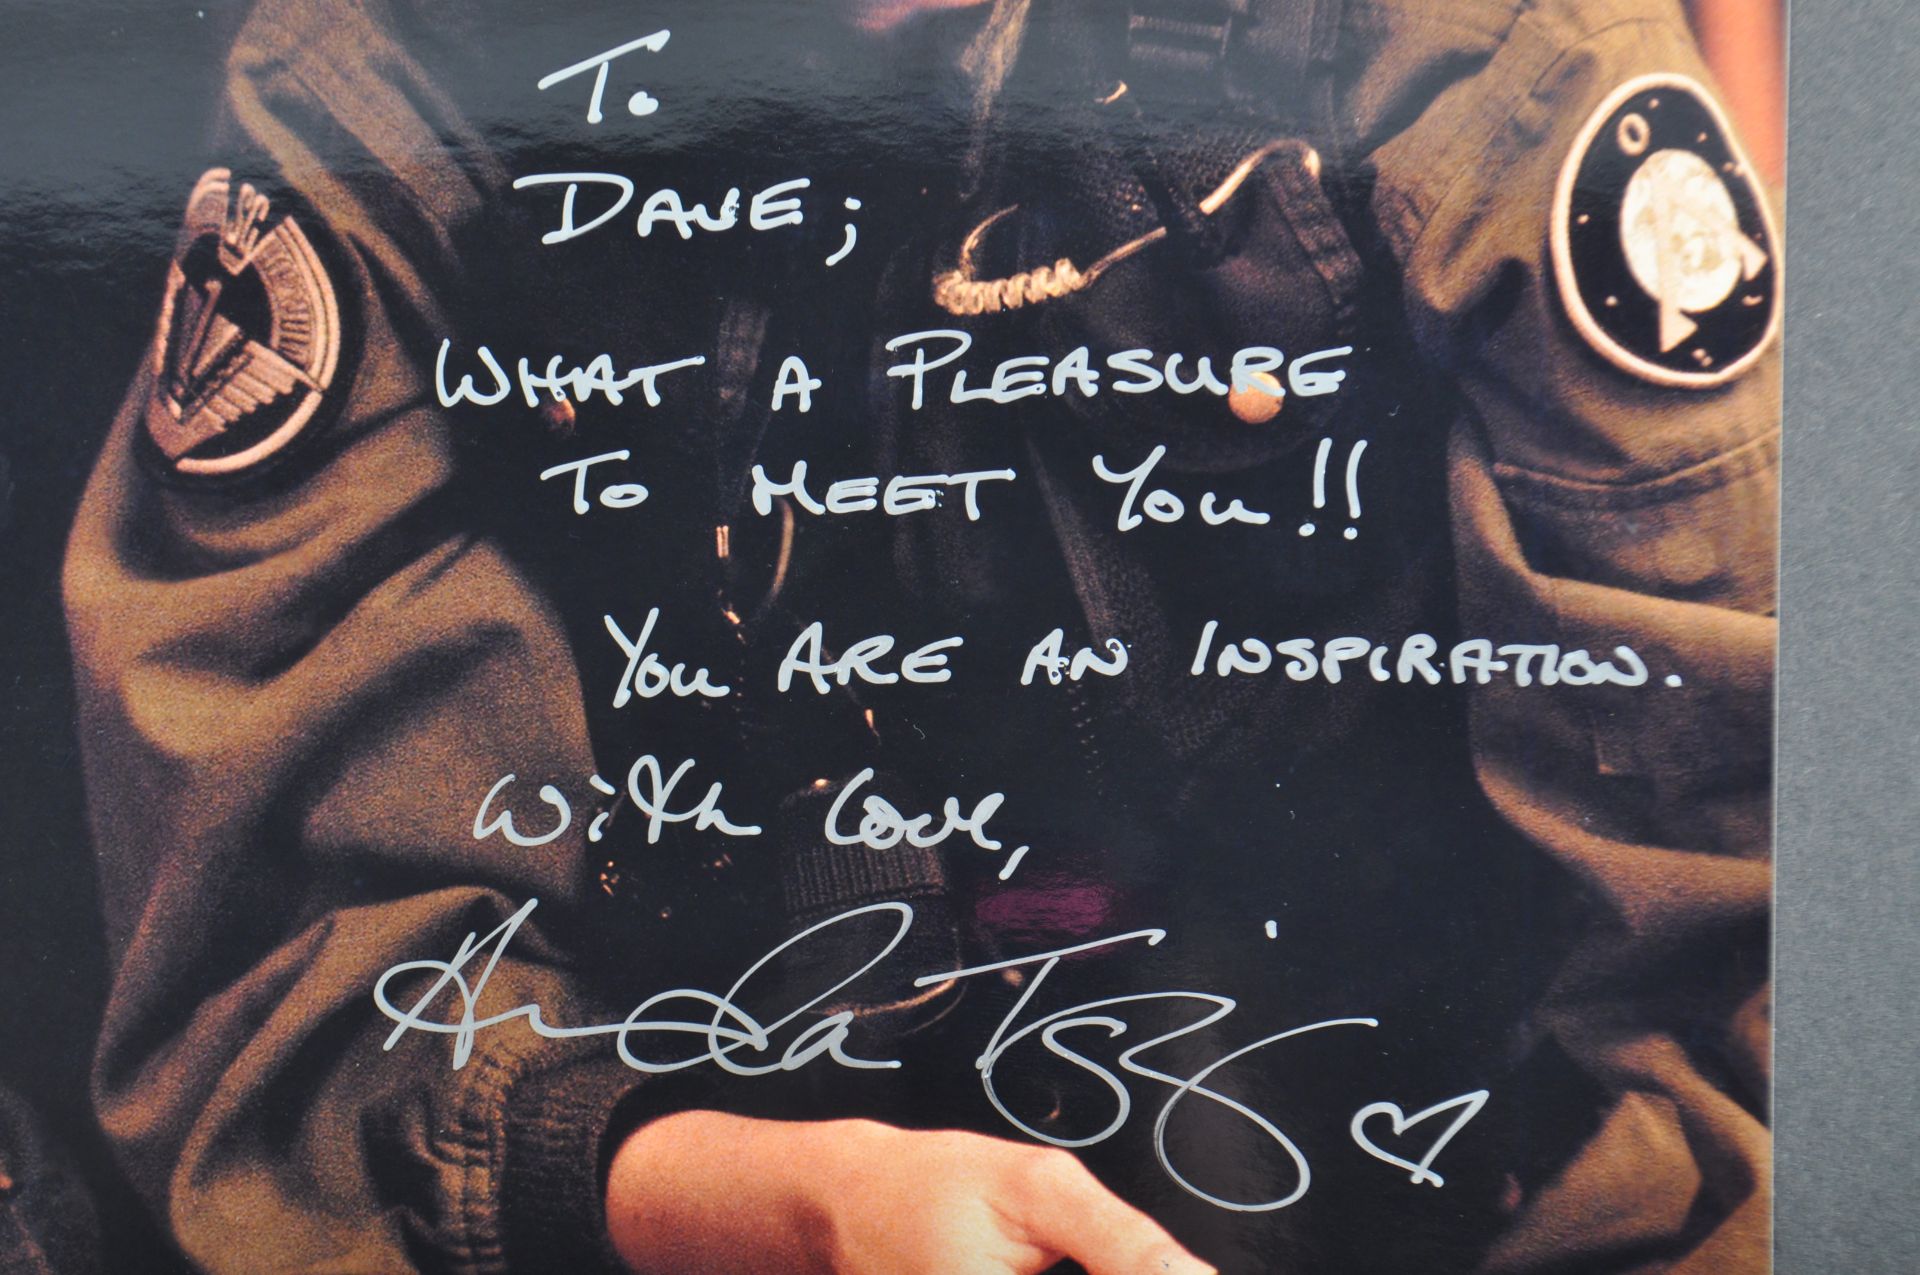 To
DAVE;
WHAT A PLEASURE
TO MEET YOU!!
YOU ARE AN INSPIRATION.
With Love,
Amanda Tapping